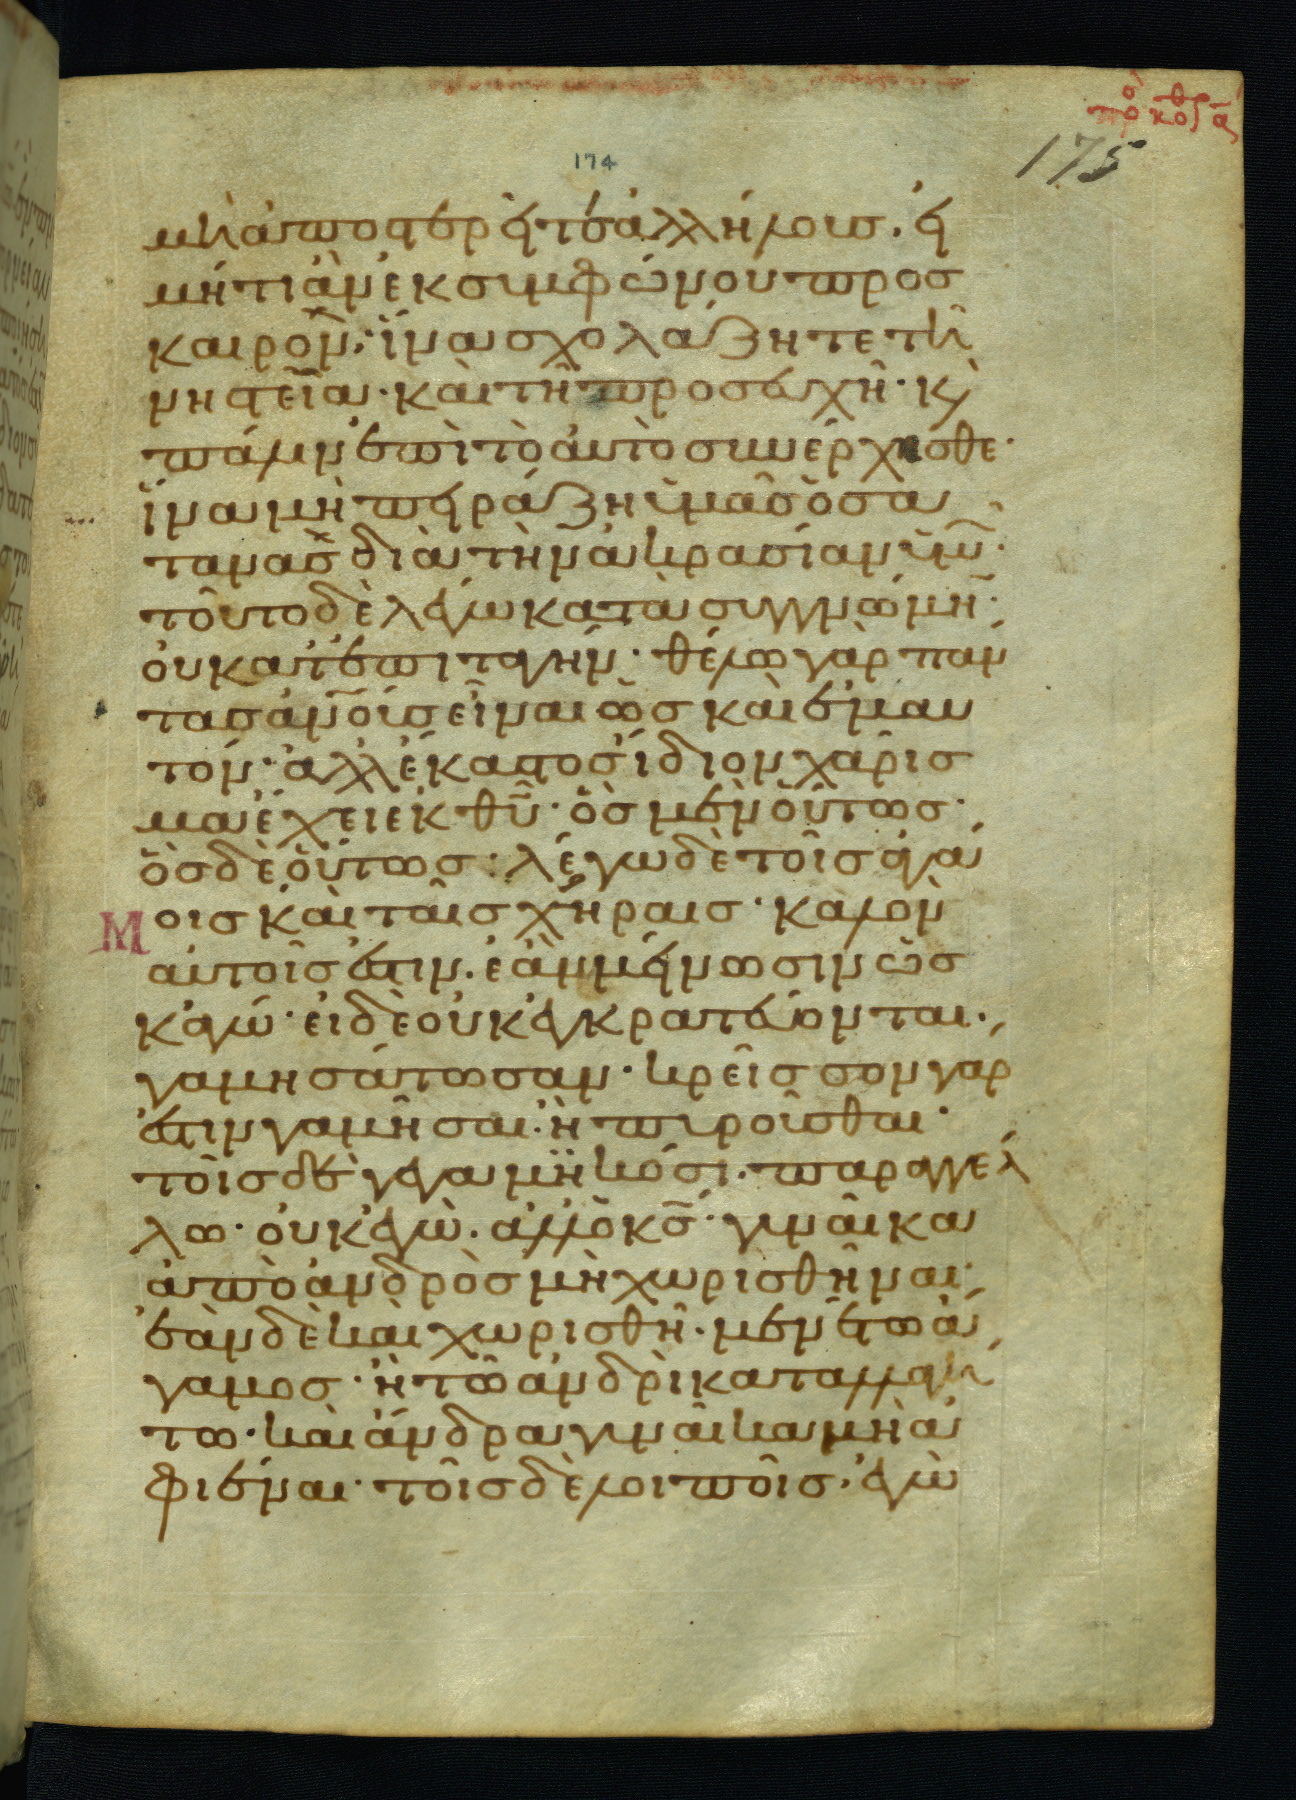 πρὸ κορ α
174
175
μὴ ἀποστερεῖτε ἀλλήλοις· εἰ
μήτι ἂν ἐκ συμφώνου προσ
καιρὸν· ἵνα σχολάζητε τῆ
νηστεῖα· καὶ τῆ προσευχῆ· κ̀
πάλιν ἐπὶ τὸ αὐτὸ συνέρχησθε·
ἵνα μὴ πειράζη ὑμᾶς ὁ σα
τανᾶς διὰ τὴν ἀκρασίαν ὑμῶν·
τοῦτο δὲ λέγω κατὰ συγγνώμην·
οὐ κατ᾽ ἐπιταγήν· θέλω γὰρ πάν
τας ἀν̅ο̅ι̅ς εἶναι ὡς καὶ ἐμαυ
τόν· ἀλλ᾽ ἕκαστος ἴδιον χάρισ
μα ἔχει ἐκ θ̅υ̅· ὃς μὲν οὕτως·
ὃς δὲ οὕτως· λέγω δὲ τοῖς ἀγά
μοις καὶ ταῖς χήραις· καλὸν
αὐτοῖς ἐστιν· ἐὰν μείνωσιν ὡς
κἀγώ· εἰ δὲ οὐκ ἐγκρατεύονται·
γαμησάτωσαν· κρεῖσσον γάρ
ἐστιν γαμῆσαι· ἢ πυροῦσθαι·
τοῖς δὲ γεγαμηκόσι· παραγγέλ
λω· οὐκ ἐγὼ· ἀλλ᾽ ὁ κ̅ς̅· γυναῖκα
ἀπὸ ἀνδρὸς μὴ χωρισθῆναι·
ἐὰν δὲ καὶ χωρισθῆ· μενέτω ἄ
γαμος· ἢ τῶ ἀνδρὶ καταλλαγή
τω· καὶ ἄνδρα γυναῖκα μὴ ἀ
φιέναι· τοῖς δὲ λοιποῖς· ἐγὼ